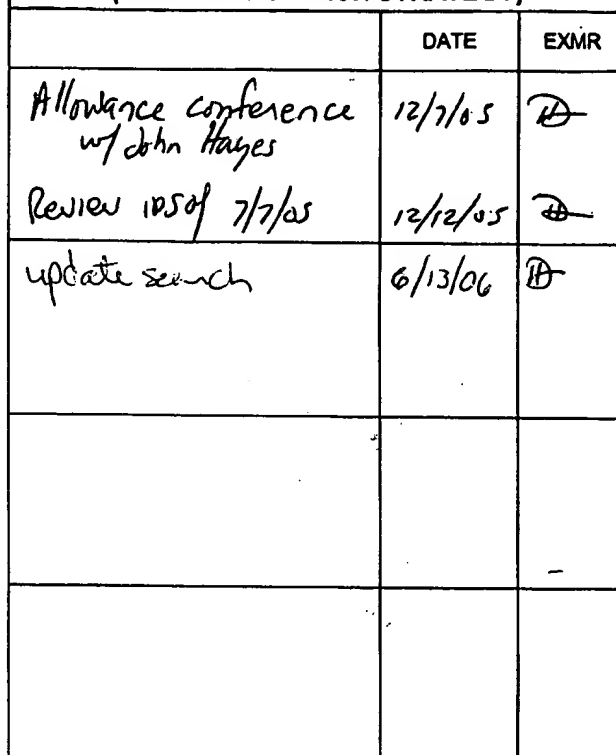 DATE EXMR
Allowance conference 12/7/05
w/ John Hayes
Review IDS of 7/7/05 12/12/05
update search 6/13/06